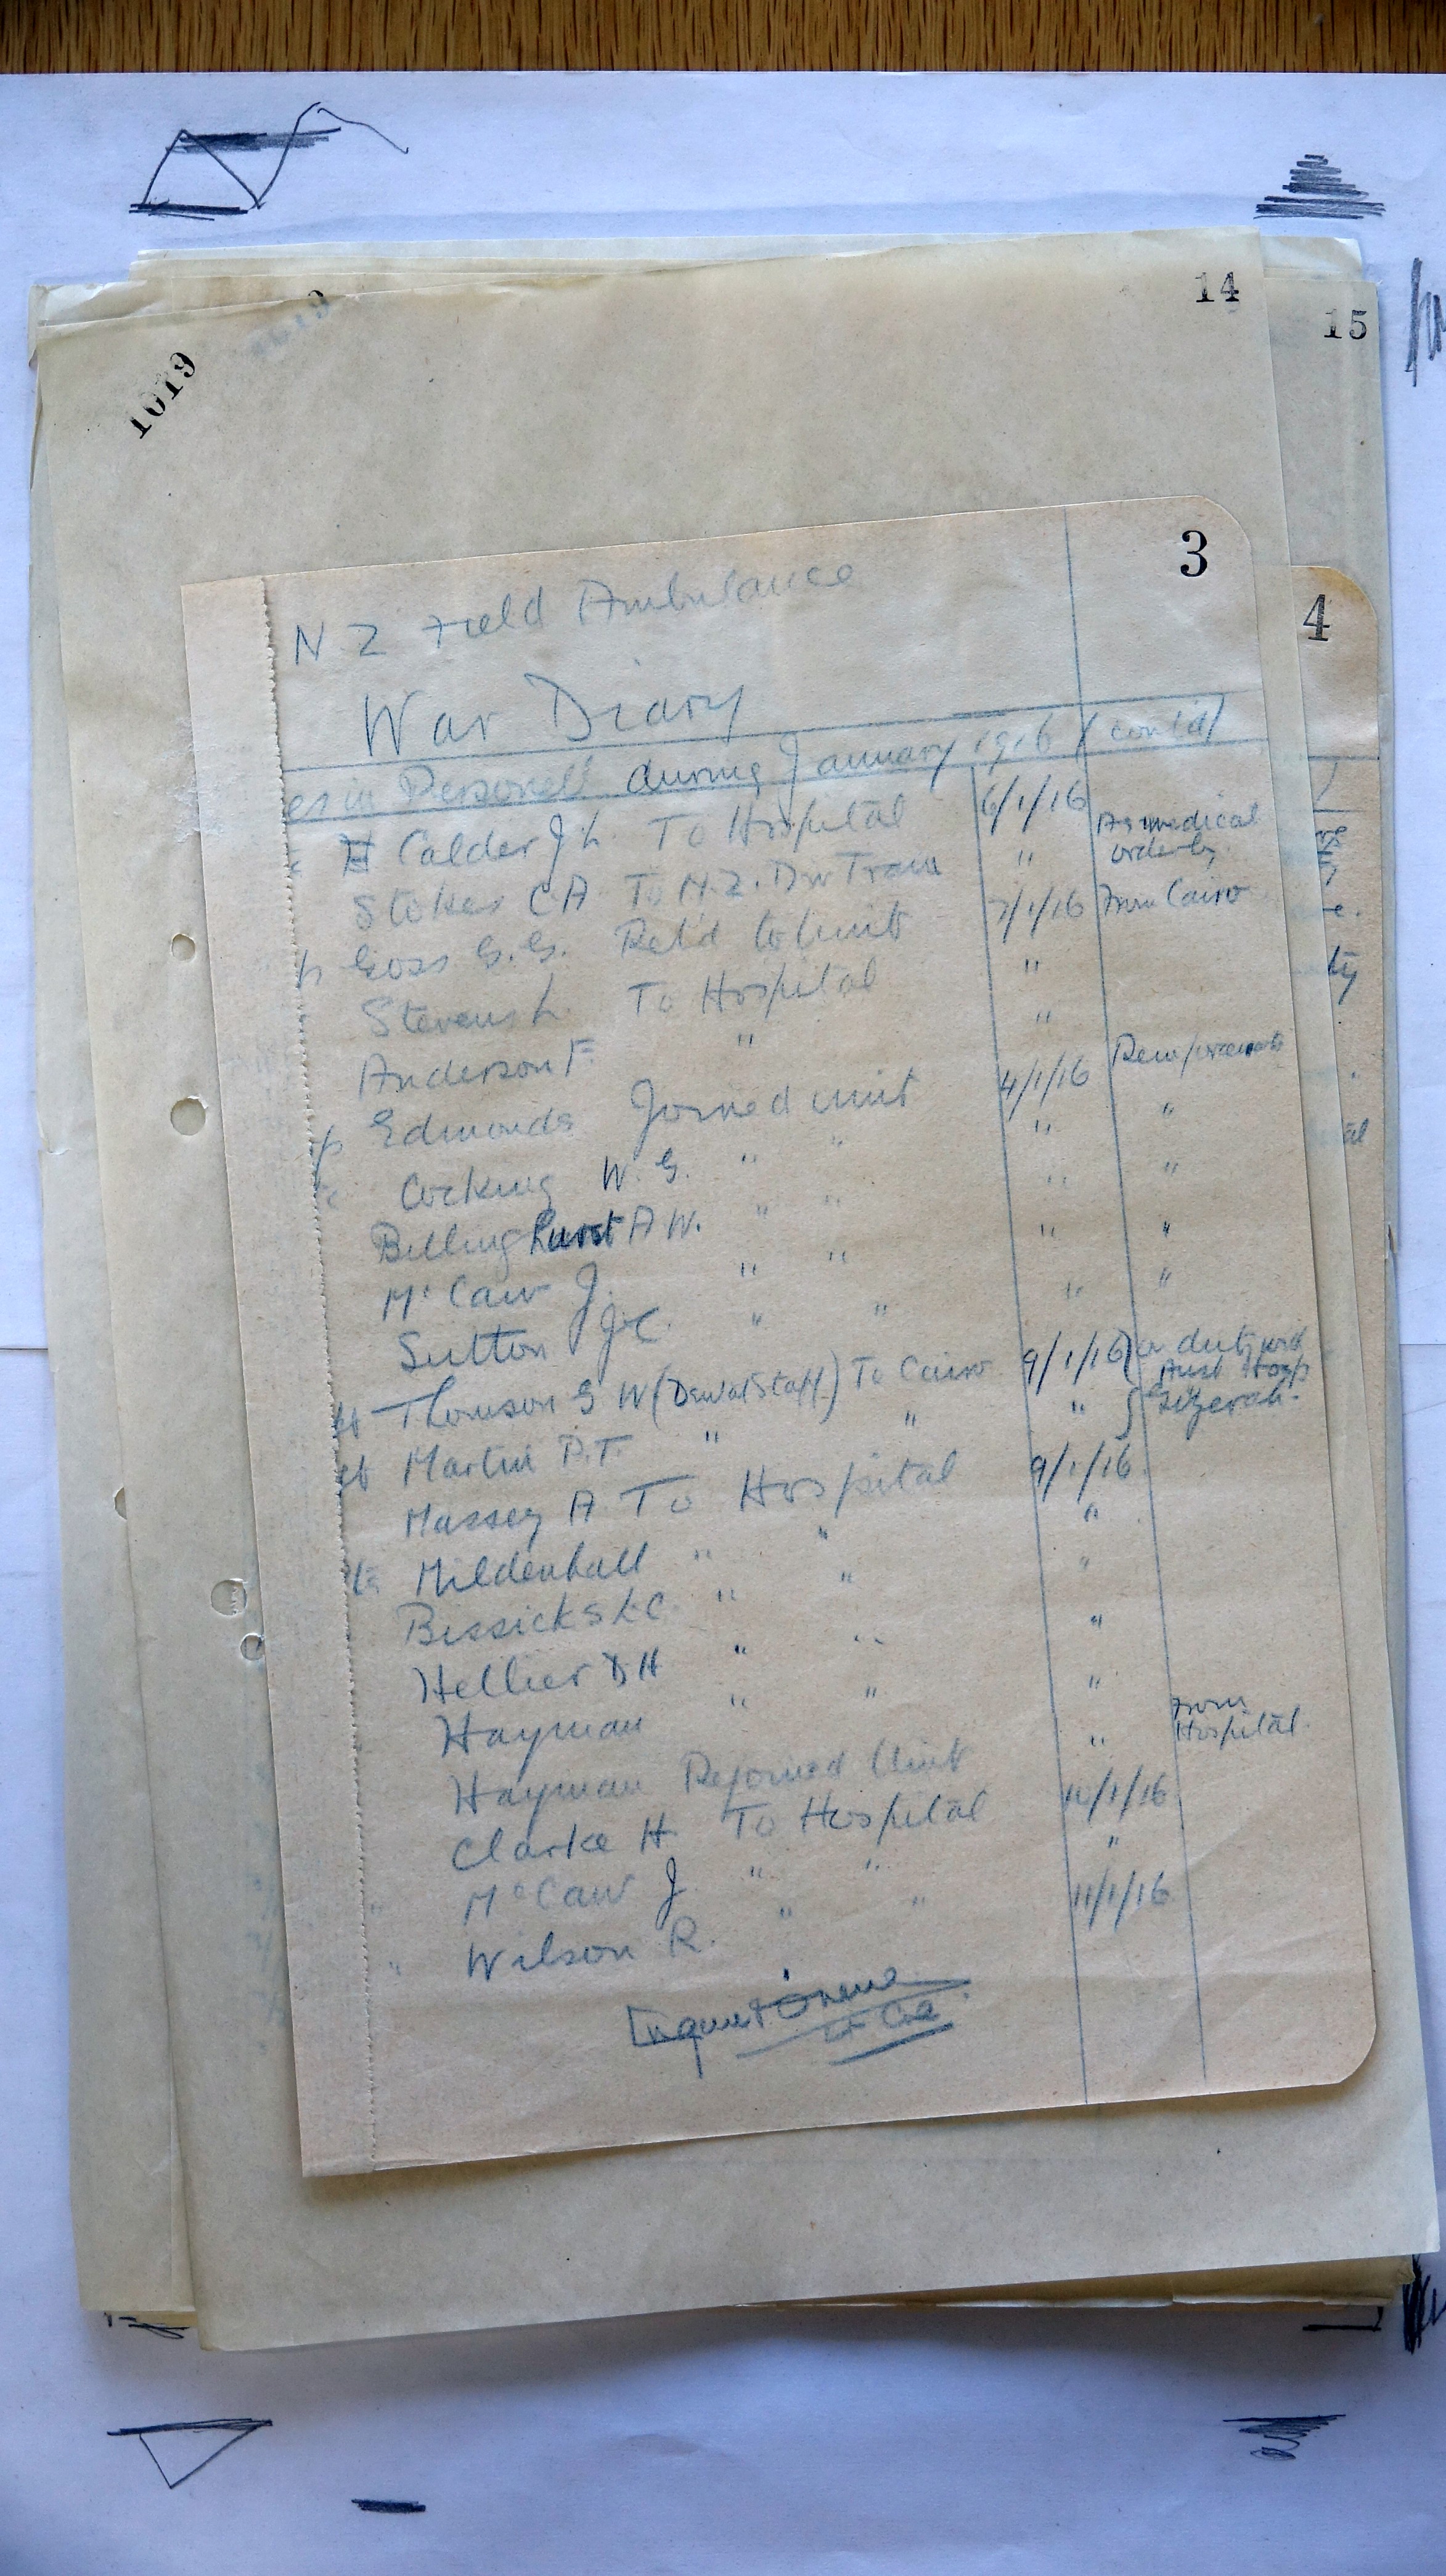 14
15
1019
3
4
N Z Field Ambulance
War Diary
es in Personell during January 1916 (contd)
H Calder J L. To Hospital 6/1/16
Stokes C A To N.Z. Div Train " As medical orderly
Goss G. G. Ret'd to Unit 7/1/16 From Cairo
Stevens L. To Hospital "
Anderson F. " "
Edmonds Joined unit 4/1/16 Reinforcements
Cocking W. G. " " " "
Billinghurst A W. " " " "
Mc Caw J. " " " "
Sutton J C. " " " "
Thomson G W (Dental Staff) To Cairo 9/1/16 } Aust Hosp
Martin P. T. " " "
Massey A To Hospital 9/1/16
Mildenhall " " "
Bissicks L C. " " "
Hellier D H " " "
Hayman " " "
Hayman Rejoined Unit " From Hospital.
Clarke H To Hospital 10/1/16
" McCaw J " " "
" Wilson R. " " 11/1/16
Lt Col.